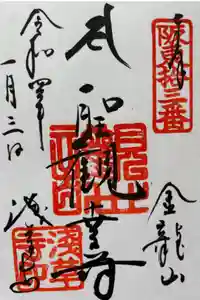 奉拝
坂東拾三番
金龍山
聖觀世音
浅草寺
令和四年
一月三日